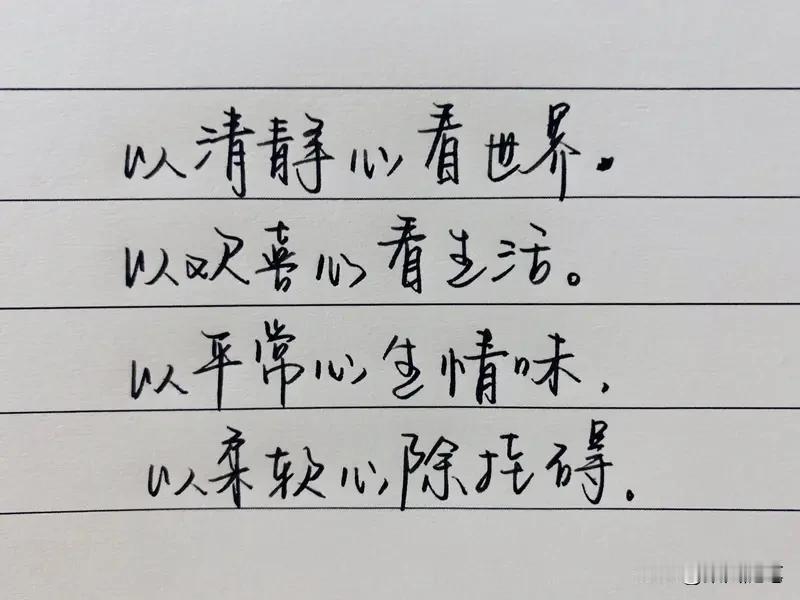 以清静心看世界.
以欢喜心看生活。
以平常心生情味,
以柔软心除挂碍.